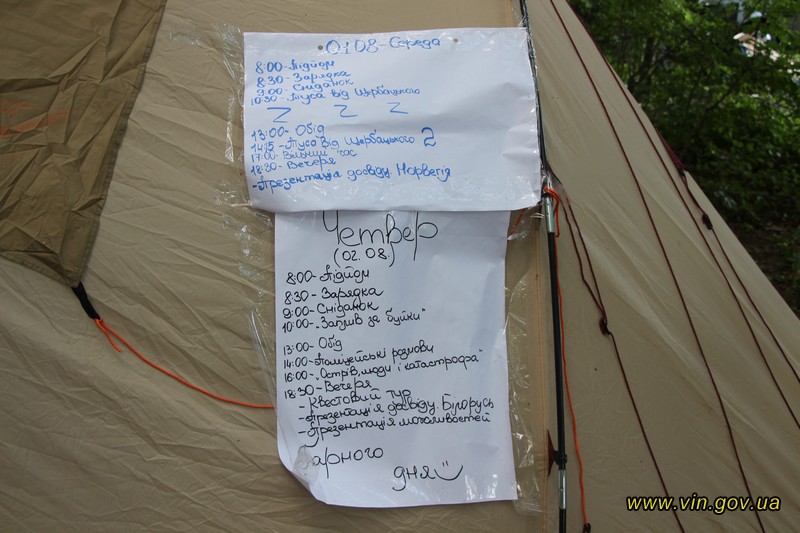 01.08 - Середа
8:00 - Підйом
8:30 - Зарядка
9:00 - Сніданок
10:30 - Туса від Щербацького
Z Z Z
13:00 - Обід
14:15 - Туса від Щербацького 2
17:00 - Вільний час
18:30 - Вечеря
- Презентація досвіду. Норвегія
Четвер
(02.08.)
8:00 - Підйом
8:30 - Зарядка
9:00 - Сніданок
10:00 - „Заплив за буйки"
13:00 - Обід
14:00 - Поліцейські розмови
16:00 - „Острів, люди і катастрофа"
18:30 - Вечеря
- Квестовий тур
- Презентація досвіду. Білорусь
- Презентація можливостей
арного
дня
www.vin.gov.ua